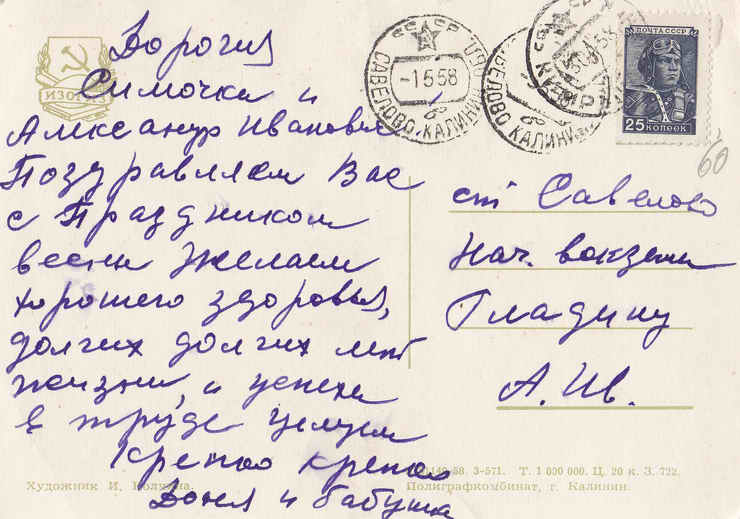 Дорогия
Симочка и
Александр Иванович.
Поздравляем Вас
с Праздником
весны Желаем
хорошего здоровья,
долгих долгих лет
жизни, и успеха
в труде Целуем
Крепко крепко
Воня и бабушка
ИЗОГИЗ
СССР
САВЕЛОВО КАЛИНИН. ОБЛ.
-1 5 58
САВЕЛОВО КАЛИНИН.
ПОЧТА СССР
25 КОПЕЕК
60
ст Савелово
Нач. вокзала
Гладину
А. Ив.
58. З-571. Т. 1 000 000. Ц. 20 к. З. 722.
Художник И.
Полиграфкомбинат, г. Калинин.